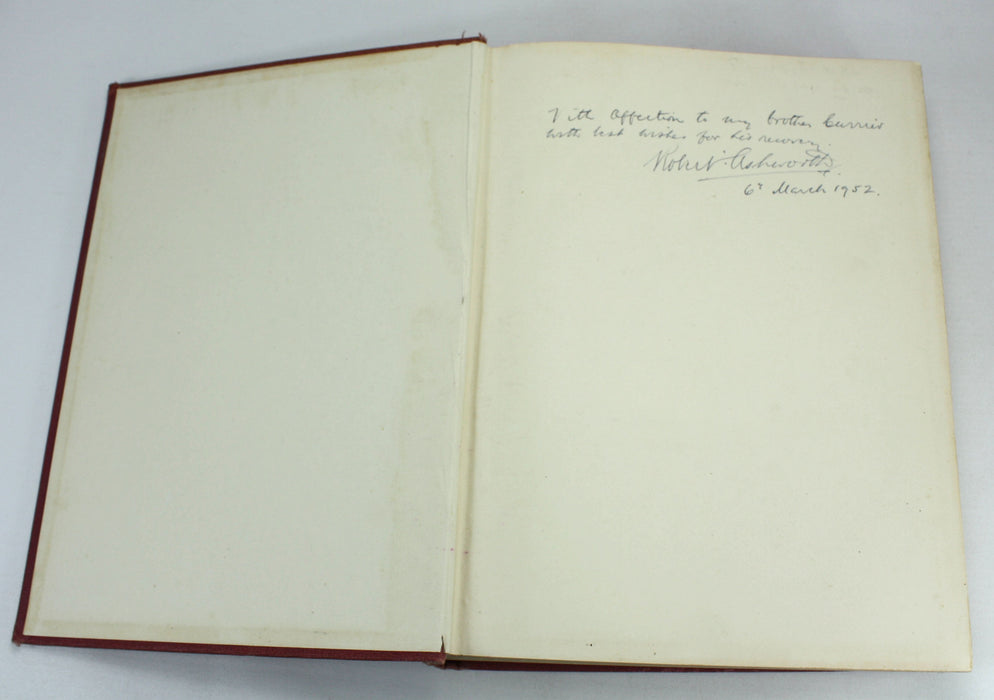 With affection to my brother Currier
with best wishes for his recovery.
Robert Ashworth.
6th March 1952.